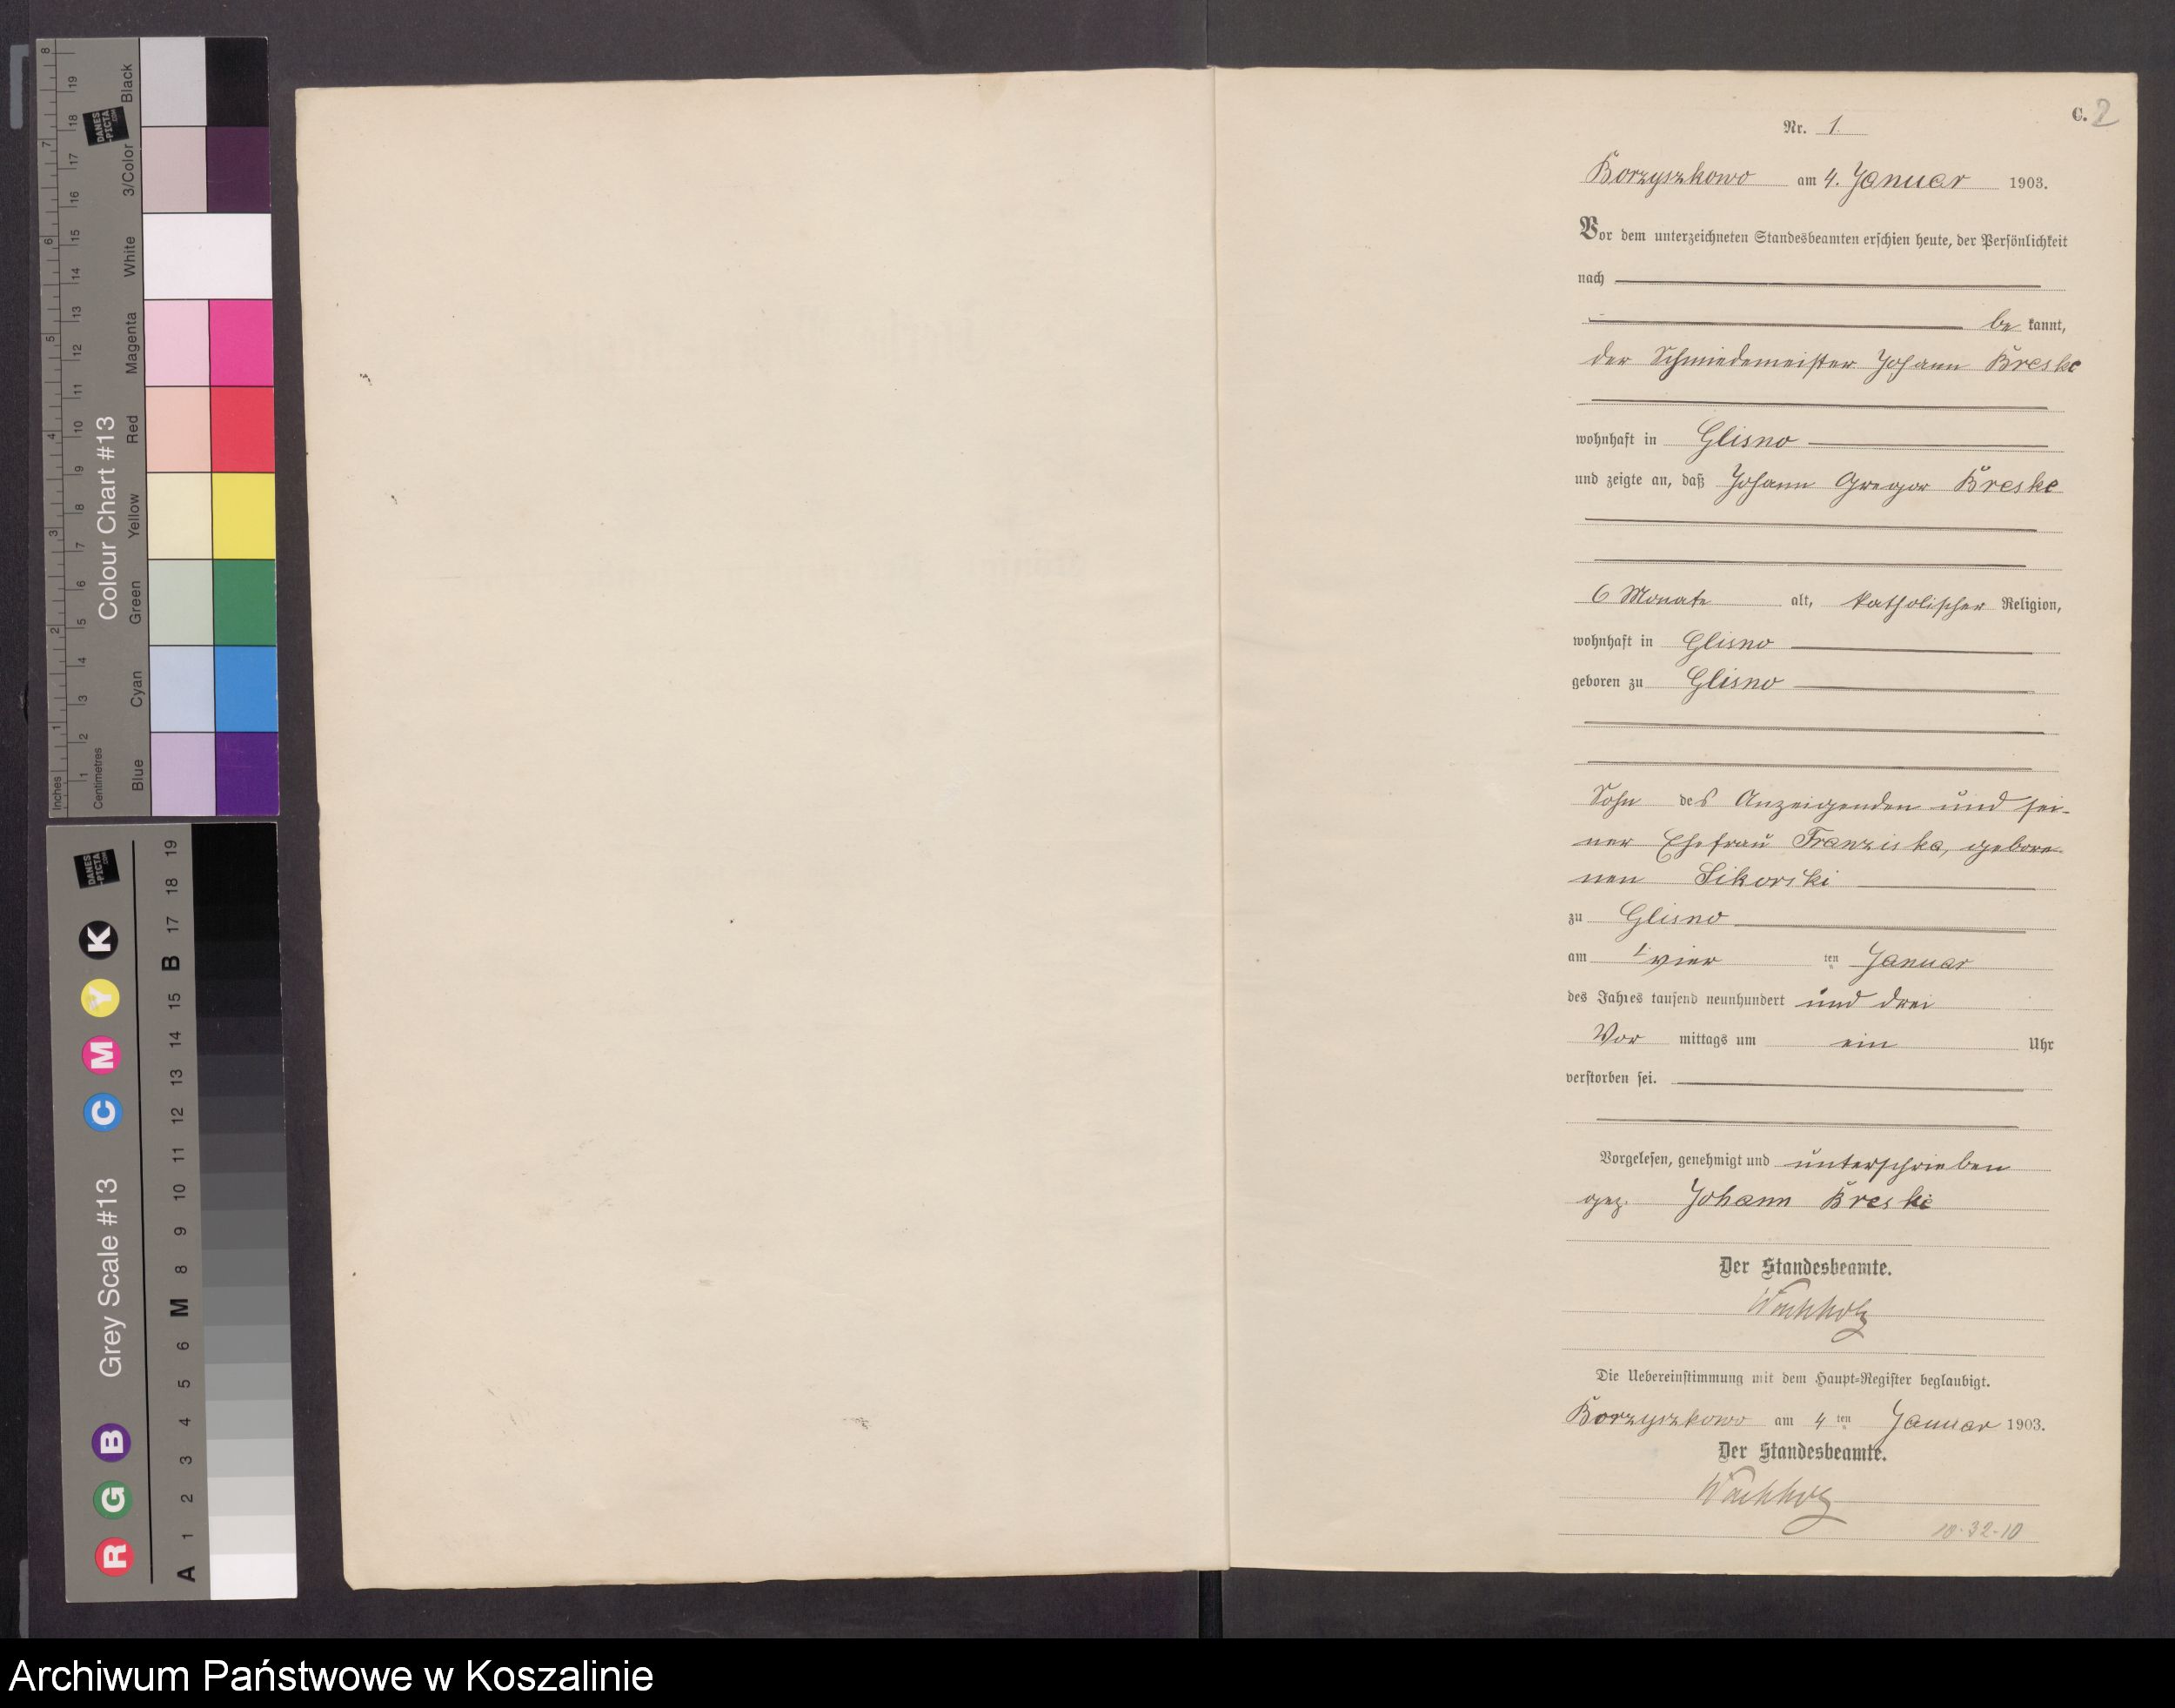 C. 2
Nr. 1.
Borzyszkowo am 4. Januar 1903.
Vor dem unterzeichneten Standesbeamten erschien heute, der Persönlichkeit
nach
be kannt,
der Schmiedemeister Johann Breske
wohnhaft in Glisno
und zeigte an, daß Johann Gregor Breske
6 Monate alt, katholischer Religion,
wohnhaft in Glisno
geboren zu Glisno
Sohn des Anzeigenden und sei-
ner Ehefrau Franziska, gebore-
nen Sikorski
zu Glisno
am vier ten Januar
des Jahres tausend neunhundert und drei
Vor mittags um ein Uhr
verstorben sei.
Vorgelesen, genehmigt und unterschrieben
gez. Johann Breske
Der Standesbeamte.
Wachholz
Die Uebereinstimmung mit dem Haupt-Register beglaubigt.
Borzyszkowo am 4 ten Januar 1903.
Der Standesbeamte.
Wachholz
10-32-10
Colour Chart #13
Black
3/Color
White
Magenta
Red
Yellow
Green
Cyan
Blue
Inches 1 2 3 4 5 6 7 8
Centimetres 1 2 3 4 5 6 7 8 9 10 11 12 13 14 15 16 17 18 19
DANES-PICTA.COM
Grey Scale #13
R G B C M Y K
A 1 2 3 4 5 6 M 8 9 10 11 12 13 14 15 B 17 18 19
DANES-PICTA.COM
Archiwum Państwowe w Koszalinie